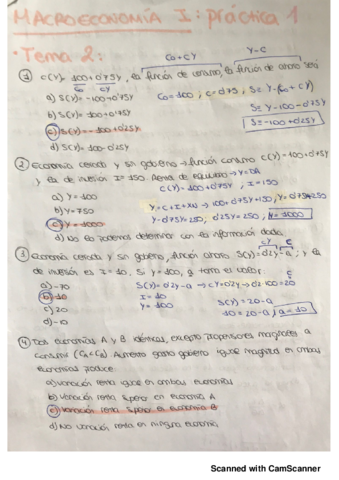 MACROECONOMÍA I: práctica 1
· Tema 2:
C₀+cY Y-C
① C(Y)= 100+0'75Y, la función de consumo, la función de ahorro será
C₀ cY
a) S(Y)= -100+0'75Y C₀=100; c=0'75; S= Y-(C₀+cY)
b) S(Y)= 100+0'25Y S= Y-100-0'75Y
c) S(Y)= -100+0'25Y S=-100+0'25Y
d) S(Y)= 100-0'25Y
② Economía cerrada y sin gobierno → función consumo C(Y)=100+0'75Y
y la de inversión I=150. Renta de equilibrio → Y=DA
C(Y)=100+0'75Y, I=150
a) Y=400
b) Y=750 Y=C+I+XN → 100+0'75Y+150, Y=0'75Y+250
c) Y=1000 Y-0'75Y=250, 0'25Y=250, Y=1000
d) No lo podemos determinar con la información dada.
③ Economía cerrada y sin gobierno, función ahorro S(Y)=0'2Y-a; y la
de inversión es I=10. Si Y=100, a toma el valor:
a) -70 S(Y)=0'2Y-a → cY=0'2Y → 0'2·100=20
b) 10 I=10
c) 20 Y=100 S(Y)=20-a
d) -10 10=20-a, a=10
④ Dos economías A y B idénticas, excepto propensiones marginales a
consumir (CA<CB) Aumento gasto gobierno igual magnitud en ambas
economías produce:
a) variación renta igual en ambas economías
b) variación renta superior en economía A
c) variación renta superior en economía B
d) No variación renta en ninguna economía
Scanned with CamScanner